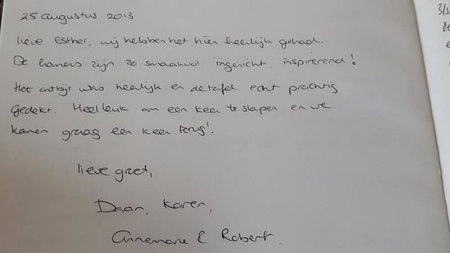 25 augustus 2013
lieve Esther, wij hebben het hier heerlijk gehad.
De kamers zijn zo smaakvol ingericht inspirerend!
Het ontbijt was heerlijk en de tafel echt prachtig
gedekt. Heel leuk om een keer te slapen en we
komen graag een keer terug!
lieve groet,
Daan, Karen,
Annemarie & Robert.